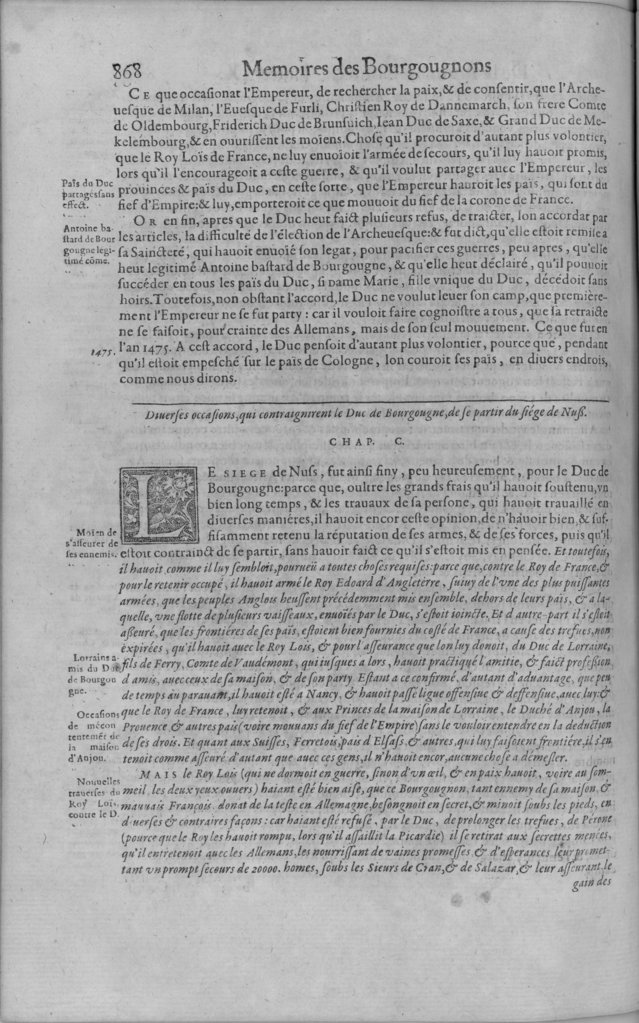 868 Memoires des Bourgougnons
CE que occasionat l'Empereur, de rechercher la paix,& de consentir, que l'Arche-
uesque de Milan, l'Euesque de Furli, Christien Roy de Dannemarch, son frere Comte
de Oldembourg, Friderich Duc de Brunsuich, Iean Duc de Saxe,& Grand Duc de Me-
kelembourg,& en ouurissent les moiens. Chose qu'il procuroit d'autant plus volontier,
que le Roy Loïs de France, ne luy enuoioit l'armée de secours, qu'il luy hauoit promis,
lors qu'il l'encourageoit a ceste guerre, & qu'il voulut partager auec l'Empereur, les
prouinces & païs du Duc, en ceste sorte, que l'Empereur hauroit les païs, qui sont du
fief d'Empire:& luy, emporteroit ce que mouuoit du fief de la corone de France.
Païs du Duc
partages sans
effect.
OR en fin, apres que le Duc heut faict plusieurs refus, de traicter, lon accordat par
les articles, la difficulté de l'élection de l'Archeuesque:& fut dict, qu'elle estoit remise a
sa Saincteté, qui hauoit enuoié son legat, pour pacifier ces guerres, peu apres, qu'elle
heut legitimé Antoine bastard de Bourgougne, & qu'elle heut déclairé, qu'il pouuoit
succéder en tous les païs du Duc, si Dame Marie, fille vnique du Duc, décédoit sans
hoirs. Toutefois, non obstant l'accord, le Duc ne voulut leuer son camp, que première-
ment l'Empereur ne se fut party : car il vouloit faire cognoistre a tous, que sa retraicte
ne se faisoit, pour crainte des Allemans, mais de son seul mouuement. Ce que fut en
l'an 1475. A cest accord, le Duc pensoit d'autant plus volontier, pource que, pendant
qu'il estoit empesché sur le païs de Cologne, lon couroit ses païs, en diuers endrois,
comme nous dirons.
Antoine ba-
stard de Bour
gougne legi-
timé côme.
1475.
Diuerses occasions, qui contraignirent le Duc de Bourgougne, de se partir du siége de Nuß.
CHAP. C.
LE SIEGE de Nuss, fut ainsi finy, peu heureusement, pour le Duc de
Bourgougne: parce que, oultre les grands frais qu'il hauoit soustenu, vn
bien long temps, & les trauaux de sa persone, qui hauoit trauaillé en
diuerses manières, il hauoit encor ceste opinion, de n'hauoir bien, & suf-
fisamment retenu la réputation de ses armes, & de ses forces, puis qu'il
estoit contrainct de se partir, sans hauoir faict ce qu'il s'estoit mis en pensée. Et toutefois,
il hauoit comme il luy sembloit, pourueü a toutes choses requises: parce que, contre le Roy de France, &
pour le retenir occupé, il hauoit armé le Roy Edoard d'Angleterre, suiuy de l'vne des plus puissantes
armées, que les peuples Anglois heussent précédemment mis ensemble, dehors de leurs païs, & a la-
quelle, vne flotte de plusieurs vaisseaux, enuoiés par le Duc, s'estoit ioincte. Et d'autre part il s'estoit
asseuré, que les frontières de ses païs, estoient bien fournies du costé de France, a cause des trefues, non
expirées, qu'il hauoit auec le Roy Loïs, & pour l'asseurance que lon luy donoit, du Duc de Lorraine,
fils de Ferry, Comte de Vaudémont, qui iusques a lors, hauoit practiqué l'amitie, & faict profession
d'amis, auec ceux de sa maison, & de son party. Estant a ce confirmé, d'autant d'aduantage, que peu
de temps au parauant, il hauoit esté a Nancy, & hauoit passé ligue offensiue & deffensiue, auec luy: &
que le Roy de France, luy retenoit, & aux Princes de la maison de Lorraine, le Duché d'Anjou, la
Prouence & autres païs (voire mouuans du fief de l'Empire) sans le vouloir entendre en la deduction
de ses drois. Et quant aux Suisses, Ferretois, païs d'Elsass & autres, qui luy faisoient frontière, il s'en
tenoit comme asseuré d'autant que auec ces gens, il n'hauoit encor, aucune chose a démesler.
Moïen de
s'asseurer de
ses ennemis.
Lorrains a-
mis du Duc
de Bourgou
gne.
Occasions
de mécon
tentemét de
la maison
d'Anjou.
MAIS le Roy Loïs (qui ne dormoit en guerre, sinon d'vn œil, & en paix hauoit, voire au som-
meil les deux yeux ouuers) haiant esté bien aise, que ce Bourgougnon, tant ennemy de sa maison, &
mauuais François donat de la teste en Allemagne, besongnoit en secret, & minoit soubs les pieds, en
diuerses & contraires façons: car haiant esté refusé, par le Duc, de prolonger les trefues, de Pérone
(pource que le Roy les hauoit rompu, lors qu'il assaillit la Picardie) il se retirat aux secrettes menées,
qu'il entretenoit auec les Allemans, les nourrissant de vaines promesses, & d'esperances leur promet-
tant vn prompt secours de 20000. homes, soubs les Sieurs de Cran, & de Salazar, & leur asseurant le
gain des
Nouuelles
trauerses du
Roy Loïs,
contre le D.